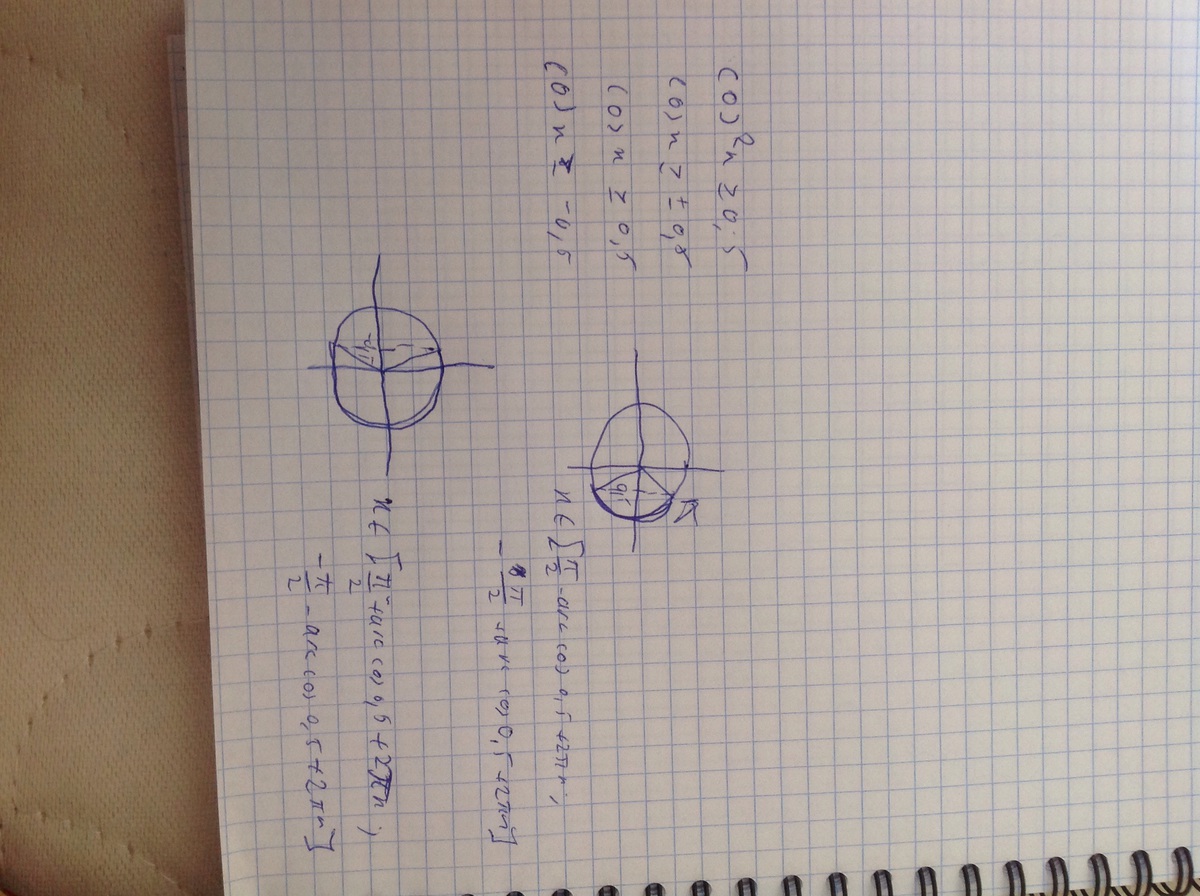 cos²x ≥ 0,5
cos x ≥ ± 0,5
cos x ≥ 0,5
cos x ≥ -0,5
0,5
x ∈ [π/2 - arccos 0,5 + 2πn;
-π/2 + arccos 0,5 + 2πn]
-0,5
x ∈ [π/2 + arccos 0,5 + 2πn;
-π/2 - arccos 0,5 + 2πn]